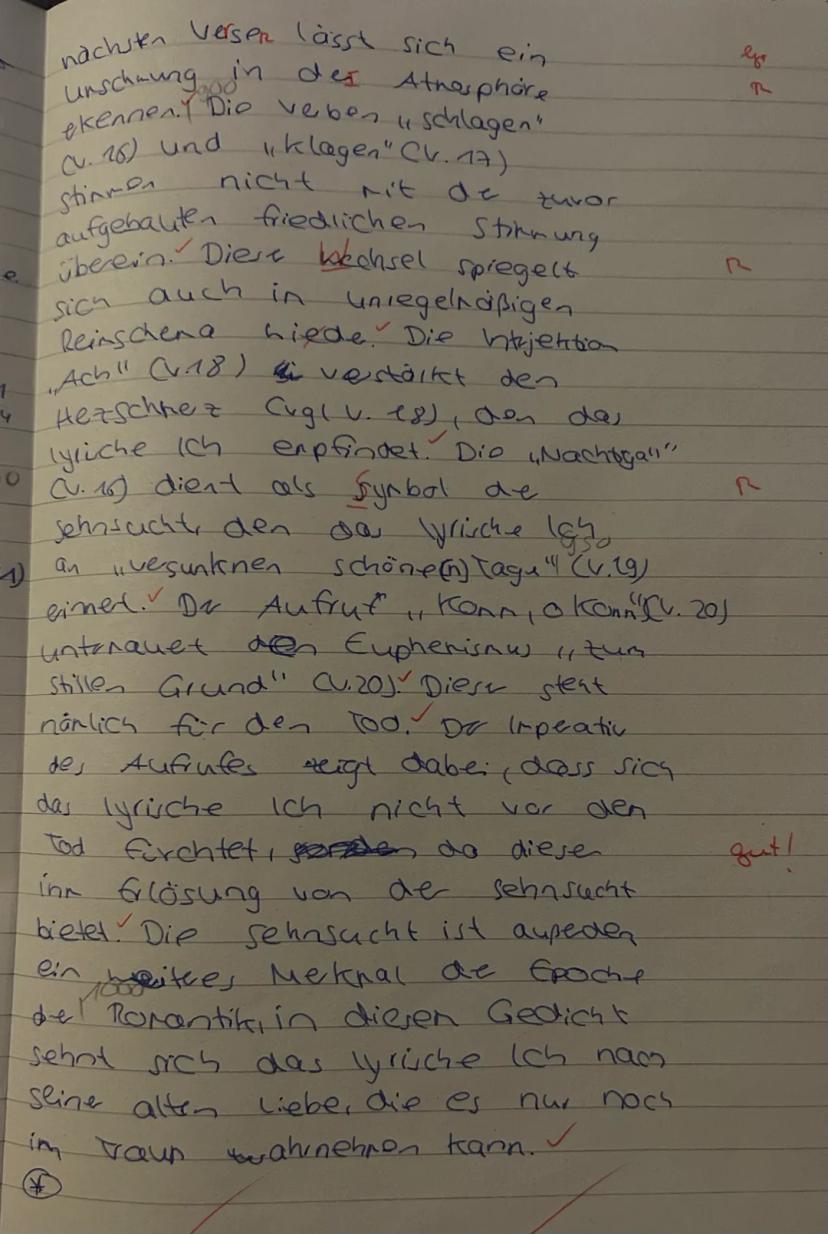 nächsten Versen lässt sich ein
Umschwung in der Atmosphäre
900
erkennen. Die Verben „schlagen"
(V. 16) und „klagen" (V. 17)
stimmen nicht mit der zuvor
aufgebauten friedlichen Stimmung
überein. Dieser Wechsel spiegelt
sich auch in unregelmäßigen
Reimschema wieder. Die Interjektion
„Ach" (V. 18) verstärkt den
Herzschmerz (vgl. V. 18), den das
lyrische Ich empfindet. Die „Nachtigall"
(V. 16) dient als Symbol der
Sehnsucht, den das lyrische Ich
950
an „versunknen schöne(n) Tage" (V. 19)
erinnert. Der Aufruf „Komm, o komm" (V. 20)
untermauert den Euphemismus „zum
stillen Grund" (V. 20). Dieser steht
nämlich für den Tod. Der Imperativ
des Aufrufes zeigt dabei, dass sich
das lyrische Ich nicht vor den
Tod fürchtet, da dieser
ihm Erlösung von der Sehnsucht
bietet. Die Sehnsucht ist außerdem
ein weiteres Merkmal der Epoche
1000
der Romantik, in diesem Gedicht
sehnt sich das lyrische Ich nach
seiner alten Liebe, die es nur noch
im Traum wahrnehmen kann.
R
R
R
gut!
e
1)